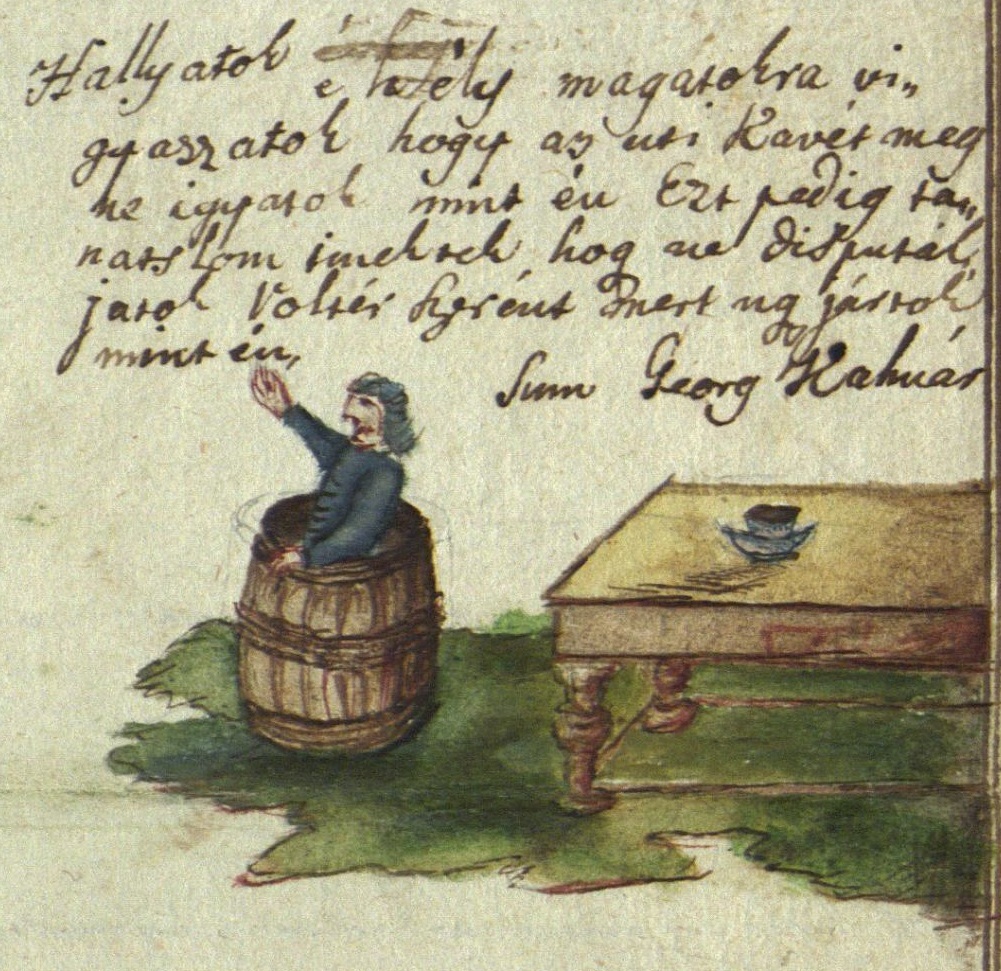 Hallyatok magatokra vi„
gyaszzatok hogy az uti Kavét meg
ne igyatok mint én Ezt pedig ta„
natslom tinektek hog ne disputál„
jatok Voltér szerént Mert ug jártok
mint én,
Sum Georg Kalmár